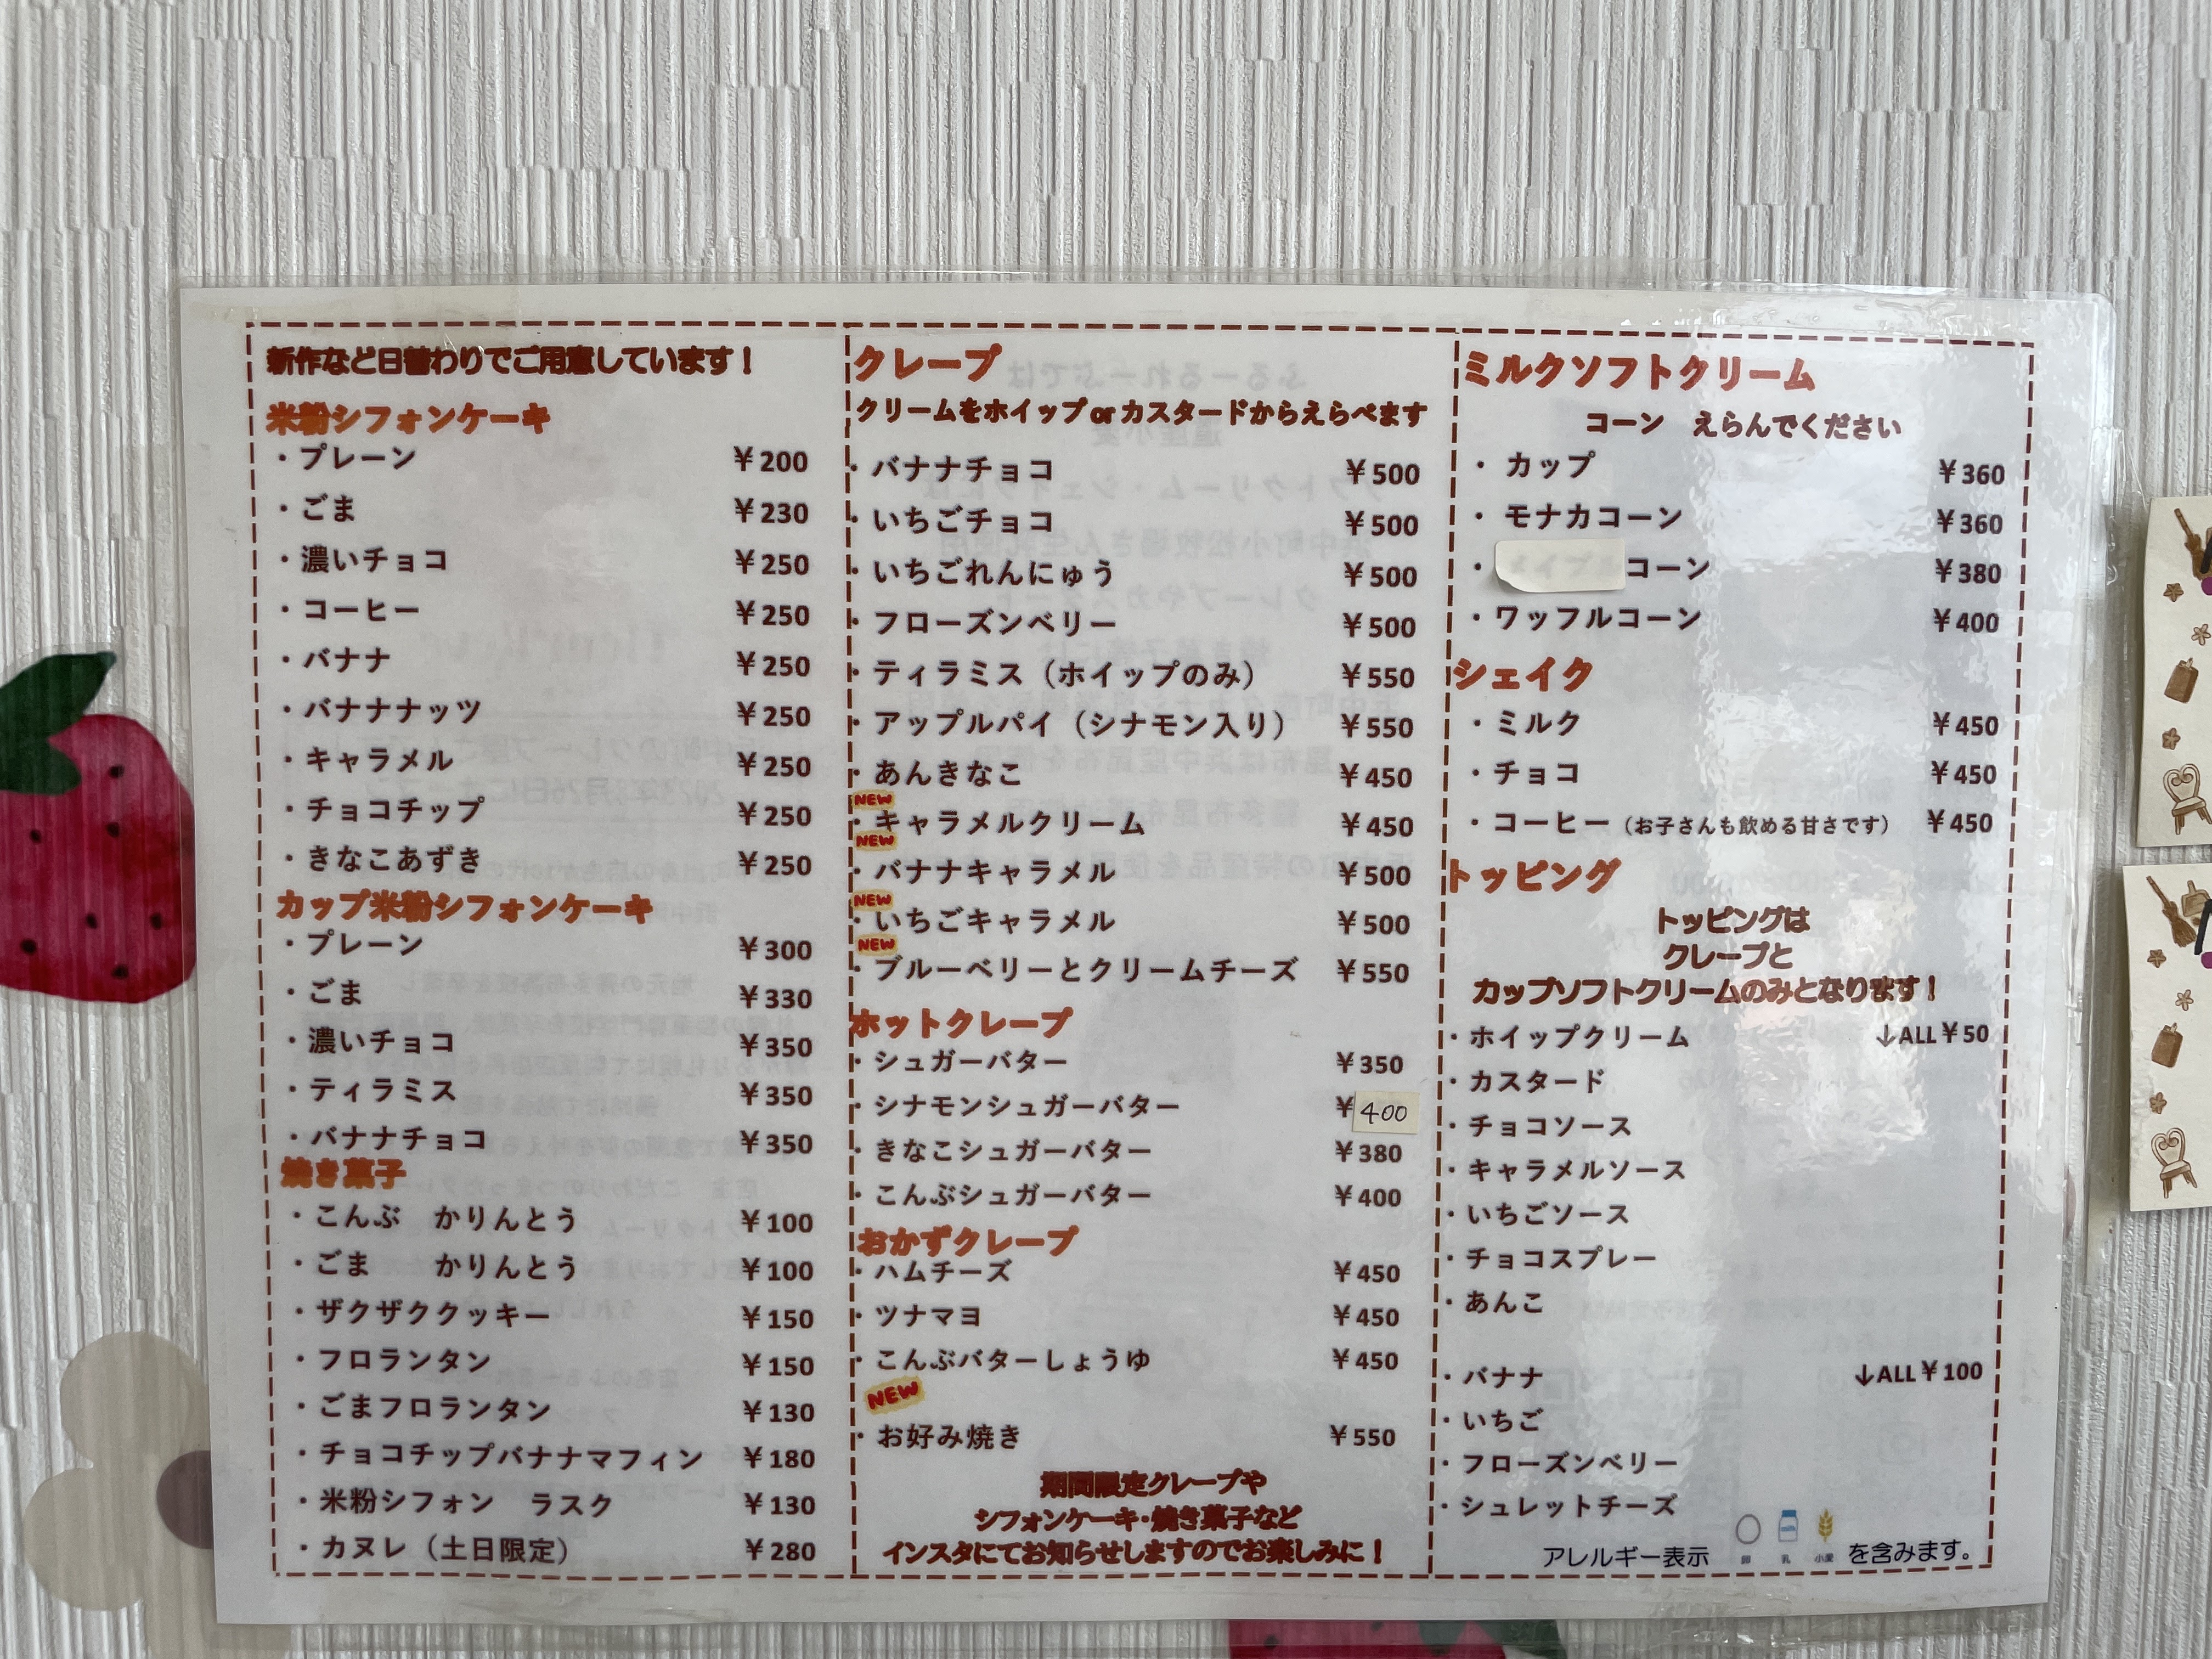 新作など日替わりでご用意しています！
米粉シフォンケーキ
・プレーン ￥200
・ごま ￥230
・濃いチョコ ￥250
・コーヒー ￥250
・バナナ ￥250
・バナナナッツ ￥250
・キャラメル ￥250
・チョコチップ ￥250
・きなこあずき ￥250
カップ米粉シフォンケーキ
・プレーン ￥300
・ごま ￥330
・濃いチョコ ￥350
・ティラミス ￥350
・バナナチョコ ￥350
焼き菓子
・こんぶ　かりんとう ￥100
・ごま　　かりんとう ￥100
・ザクザククッキー ￥150
・フロランタン ￥150
・ごまフロランタン ￥130
・チョコチップバナナマフィン ￥180
・米粉シフォン　ラスク ￥130
・カヌレ（土日限定） ￥280
クレープ
クリームをホイップorカスタードからえらべます
・バナナチョコ ￥500
・いちごチョコ ￥500
・いちごれんにゅう ￥500
・フローズンベリー ￥500
・ティラミス（ホイップのみ） ￥550
・アップルパイ（シナモン入り） ￥550
・あんきなこ ￥450
NEW
・キャラメルクリーム ￥450
NEW
・バナナキャラメル ￥500
NEW
・いちごキャラメル ￥500
NEW
・ブルーベリーとクリームチーズ ￥550
ホットクレープ
・シュガーバター ￥350
・シナモンシュガーバター ￥400
・きなこシュガーバター ￥380
・こんぶシュガーバター ￥400
おかずクレープ
・ハムチーズ ￥450
・ツナマヨ ￥450
・こんぶバターしょうゆ ￥450
NEW
・お好み焼き ￥550
期間限定クレープや
シフォンケーキ・焼き菓子など
インスタにてお知らせしますのでお楽しみに！
ミルクソフトクリーム
コーン　えらんでください
・カップ ￥360
・モナカコーン ￥360
・コーン ￥380
・ワッフルコーン ￥400
シェイク
・ミルク ￥450
・チョコ ￥450
・コーヒー（お子さんも飲める甘さです） ￥450
トッピング
トッピングは
クレープと
カップソフトクリームのみとなります！
・ホイップクリーム ↓ALL￥50
・カスタード
・チョコソース
・キャラメルソース
・いちごソース
・チョコスプレー
・あんこ
・バナナ ↓ALL￥100
・いちご
・フローズンベリー
・シュレットチーズ
アレルギー表示 卵 乳 小麦 を含みます。